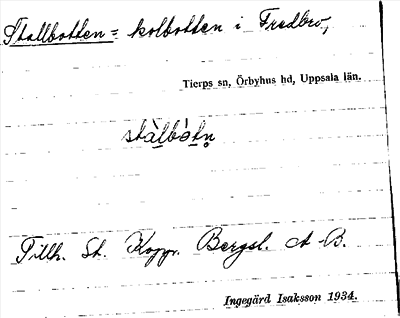 Stallbotten = kolbotten i Fredbro,
Tierps sn, Örbyhus hd, Uppsala län.
stàlbòtn̥
Tillh. St. Koppr. Bergsl. A-B.
Ingegärd Isaksson 1934.